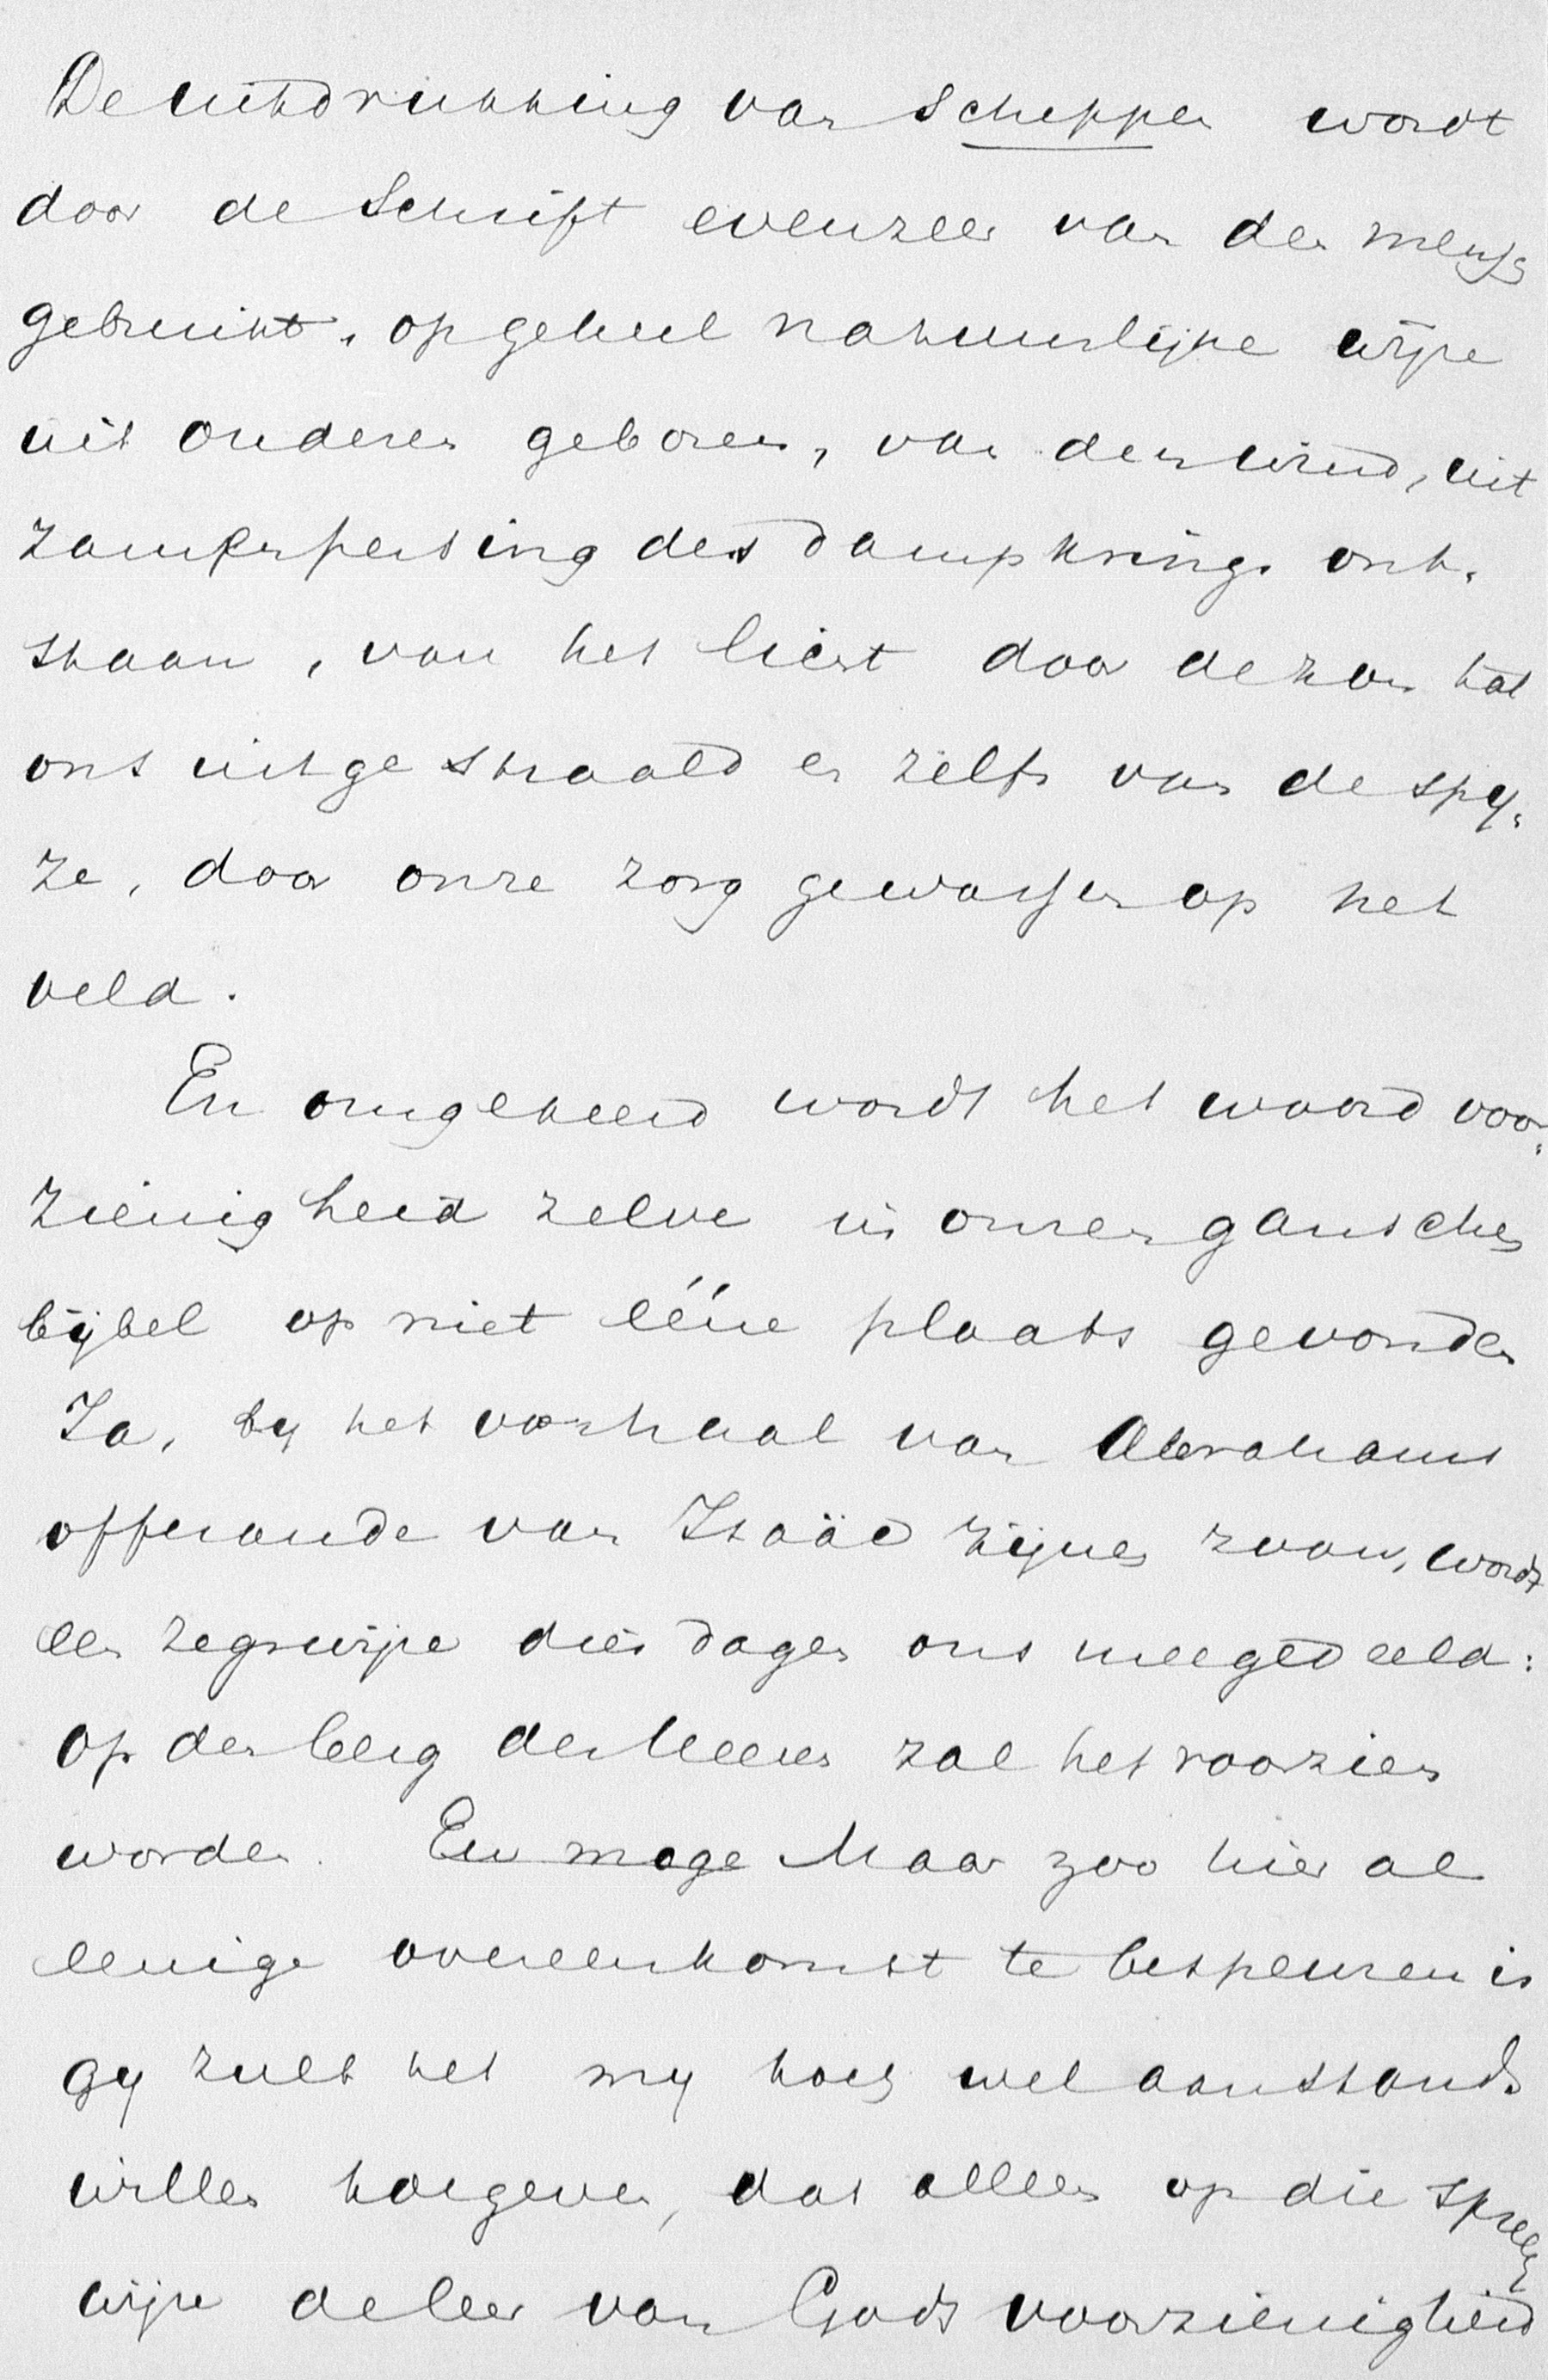 De uitdrukking van scheppen wordt
door de Schrift evenzeer van den mensch
gebruikt, op geheel natuurlijke wijze
uit ouderen geboren, van den wind, uit
zamenpersing des dampkrings ont-
staan, van het licht door de zon tot
ons uitgestraald en zelfs van de spy-
ze, door onze zorg gewassen op het
veld.
En omgekeerd wordt het woord voor-
zienigheid zelve in onzen ganschen
bijbel op niet ééne plaats gevonden
Ja, by het verhaal van Abrahams
offerande van Isaäc zijnen zoon, wordt
een zegswijze dier dagen ons meegedeeld:
op den berg des Heeren zal het voorzien
worden. En moge Maar zoo hier al
eenige overeenkomst te bespeuren is
gy zult het my toch wel aanstonds
willen toegeven, dat alleen op die spreek
wijze de leer van Gods voorzienigheid